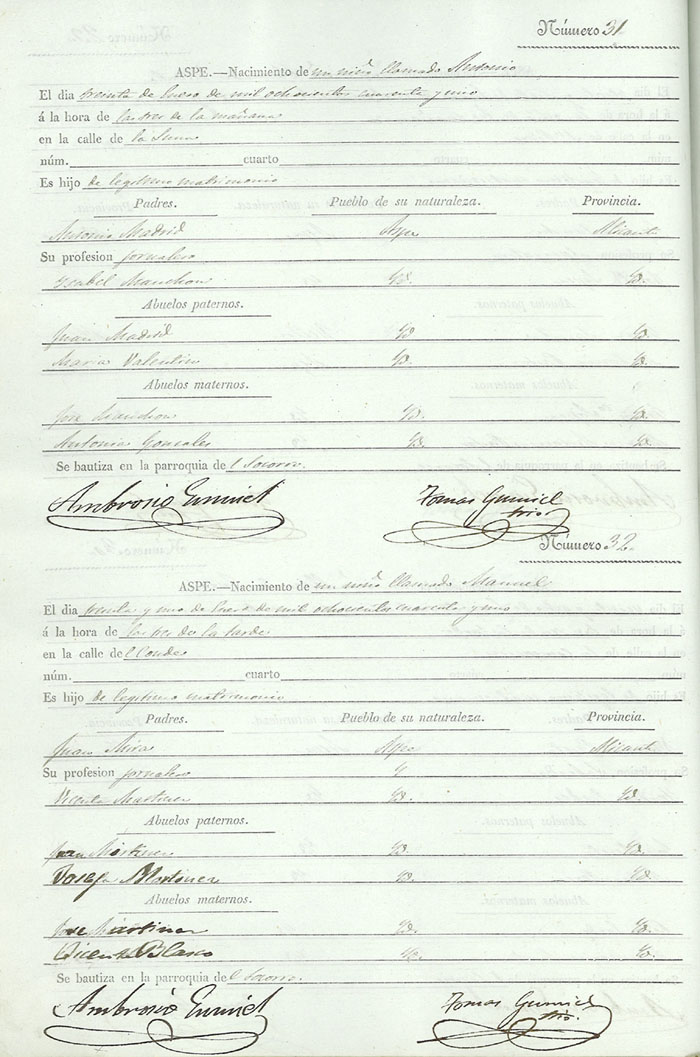 Número 31
ASPE.—Nacimiento de un niño llamado Antonio
El dia treinta de Enero de mil ochocientos cuarenta y uno
á la hora de las tres de la mañana
en la calle de la
núm. cuarto
Es hijo de legitimo matrimonio
Padres. Pueblo de su naturaleza. Provincia.
Antonio Madrid Aspe Alicante
Su profesion jornalero
Ysabel Manchon Yd. Yd.
Abuelos paternos.
Juan Madrid Yd. Yd.
Maria Valentin Yd. Yd.
Abuelos maternos.
Jose Manchon Yd. Yd.
Antonia Gonzales Yd. Yd.
Se bautiza en la parroquia del Socorro
Ambrosio Tomas
Número 32.
ASPE.—Nacimiento de un niño llamado Manuel
El dia treinta y uno de Enero de mil ochocientos cuarenta y uno
á la hora de las tres de la tarde
en la calle del Conde
núm. cuarto
Es hijo de legitimo matrimonio
Padres. Pueblo de su naturaleza. Provincia.
Juan Mira Aspe Alicante
Su profesion jornalero
Vicenta Martinez Yd. Yd.
Abuelos paternos.
Juan Yd. Yd.
Josefa Martinez Yd. Yd.
Abuelos maternos.
Jose Martinez Yd. Yd.
Vicenta Blasco Yd. Yd.
Se bautiza en la parroquia del Socorro
Ambrosio Tomas